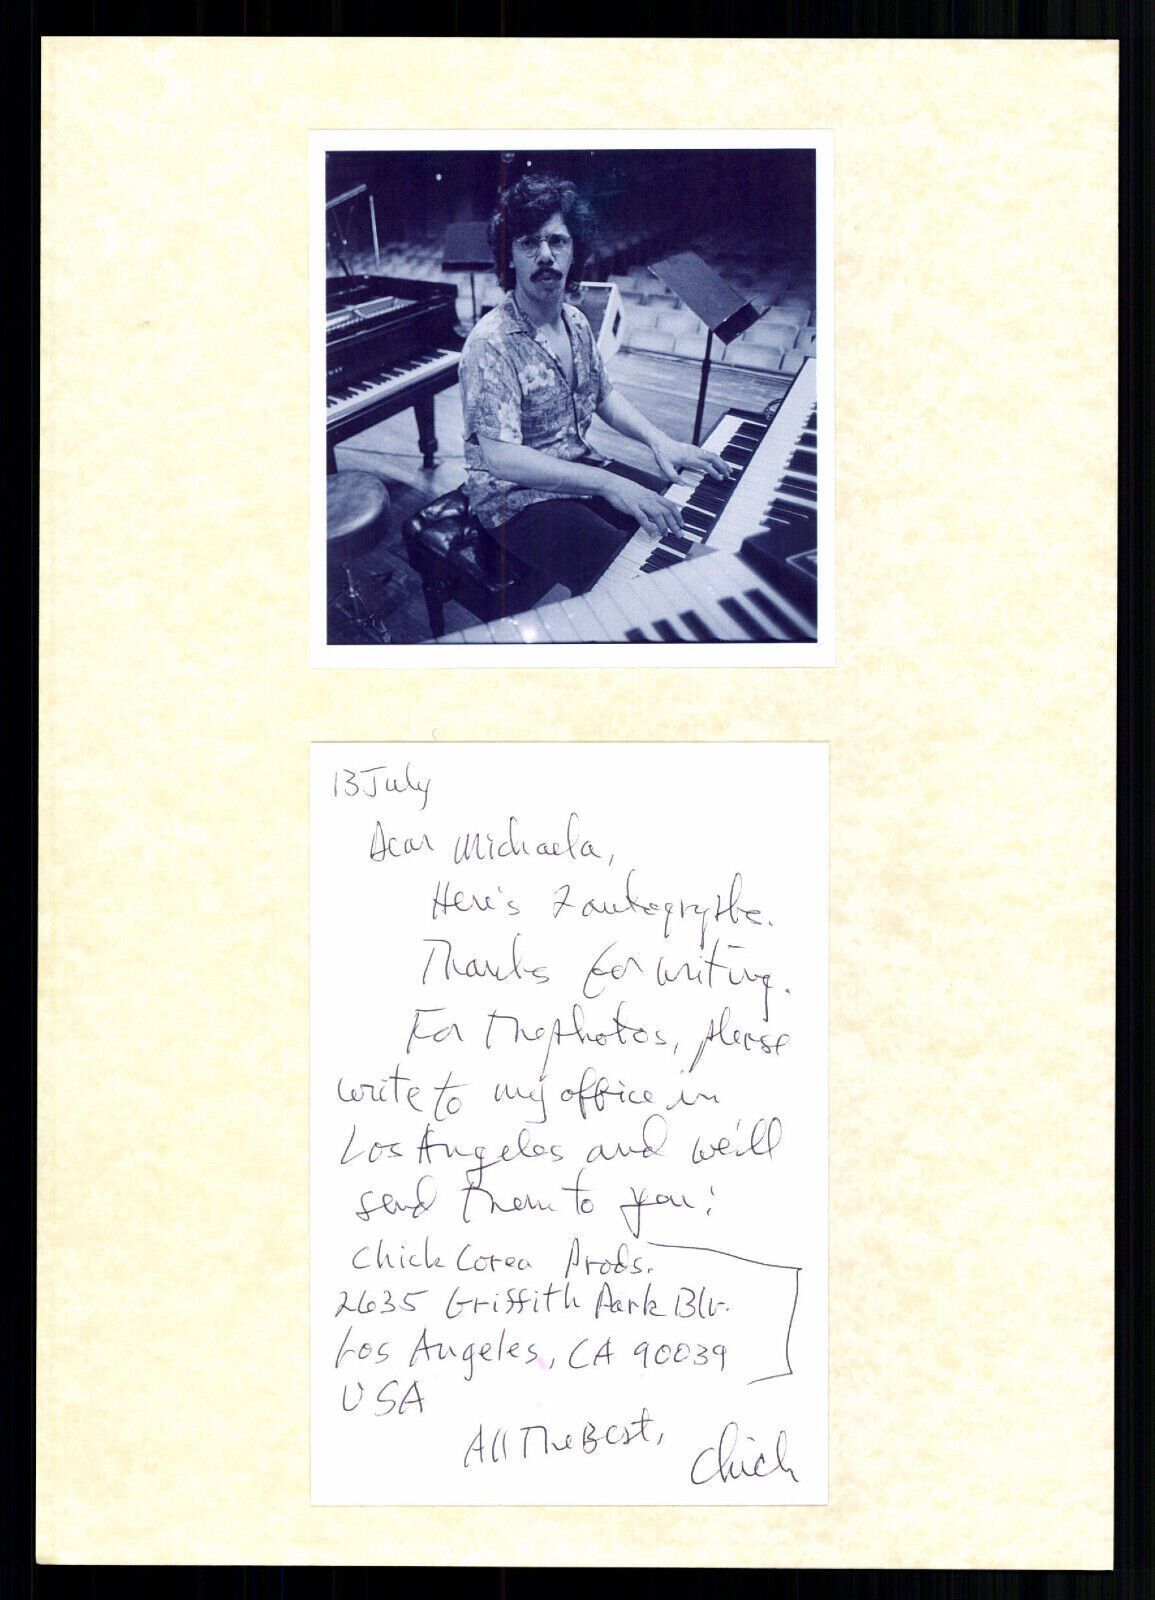 13 July
Dear Michaela,
Here's 2 autographs.
Thanks for writing.
For the photos, please
write to my office in
Los Angeles and we'll
send them to you:
Chick Corea Prods.
2635 Griffith Park Blv.
Los Angeles, CA 90039
USA
All The Best,
Chick